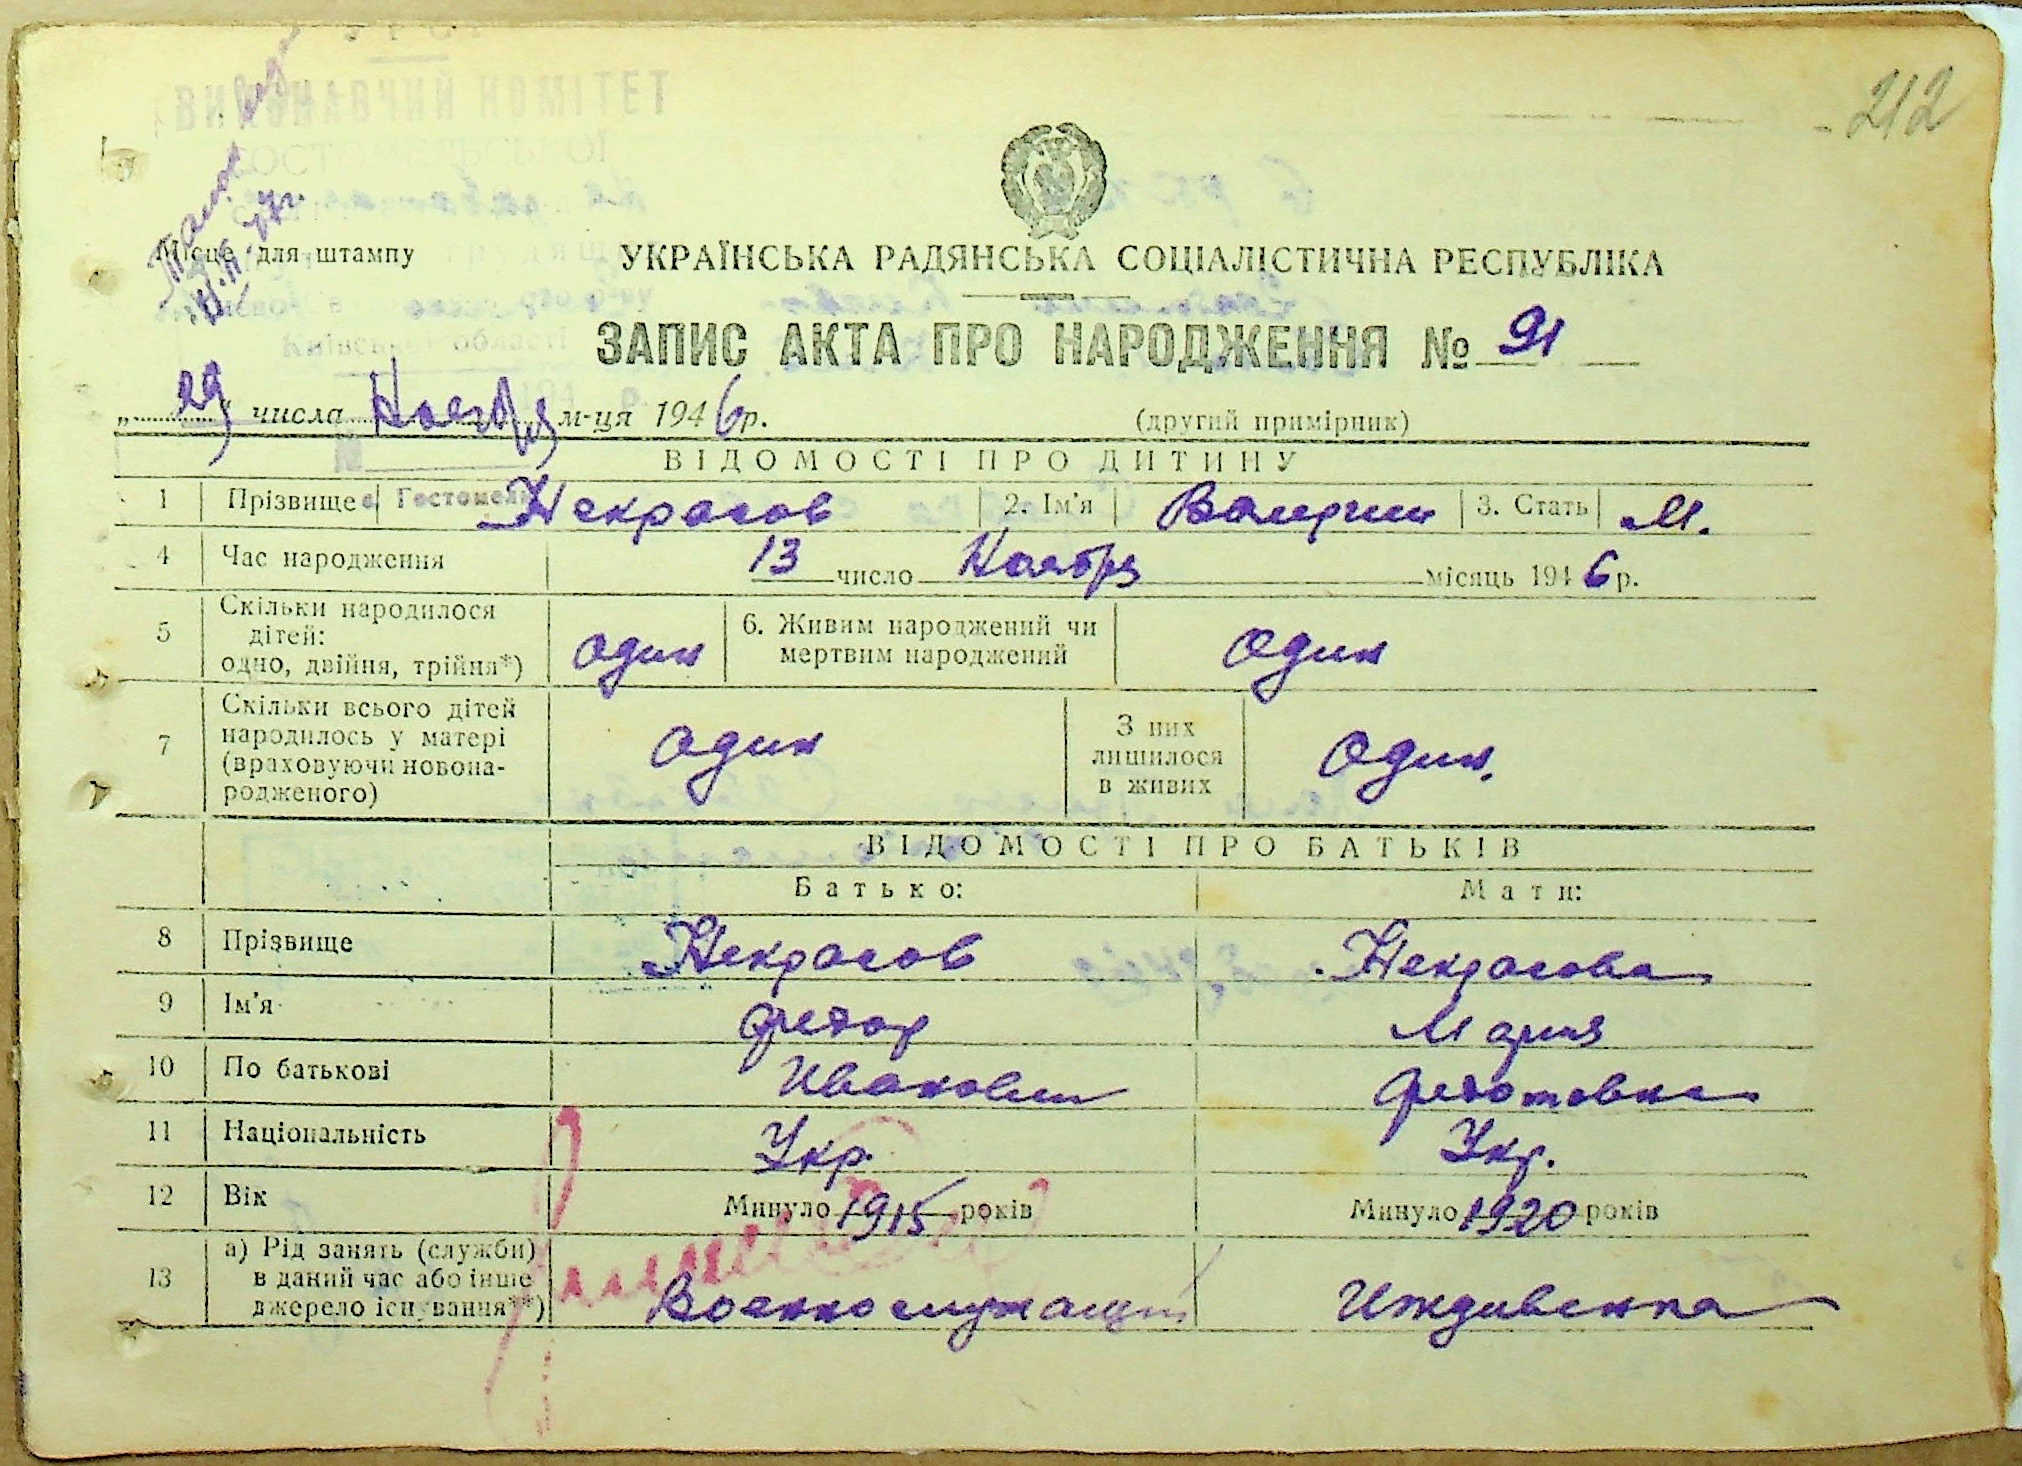 212
ВИКОНАВЧИЙ КОМІТЕТ
Місце для штампу
УКРАЇНСЬКА РАДЯНСЬКА СОЦІАЛІСТИЧНА РЕСПУБЛІКА
Київської області
ЗАПИС АКТА ПРО НАРОДЖЕННЯ № 91
„29" числа Ноября м-ця 1946 р.
(другий примірник)
ВІДОМОСТІ ПРО ДИТИНУ
1 Прізвище Некрасов 2. Ім'я Валерий 3. Стать М.
4 Час народження 13 число Ноября місяць 1946 р.
5 Скільки народилося дітей: одно, двійня, трійня*) один 6. Живим народжений чи мертвим народжений один
7 Скільки всього дітей народилось у матері (враховуючи новонародженого) один З них лишилося в живих один.
ВІДОМОСТІ ПРО БАТЬКІВ
Батько: Мати:
8 Прізвище Некрасов Некрасова
9 Ім'я Федор Мария
10 По батькові Иванович Федотовна
11 Національність Укр. Укр.
12 Вік Минуло 1915 років Минуло 1920 років
13 а) Рід занять (служби) в даний час або інше джерело існування**) Военнослужащий Иждивенка